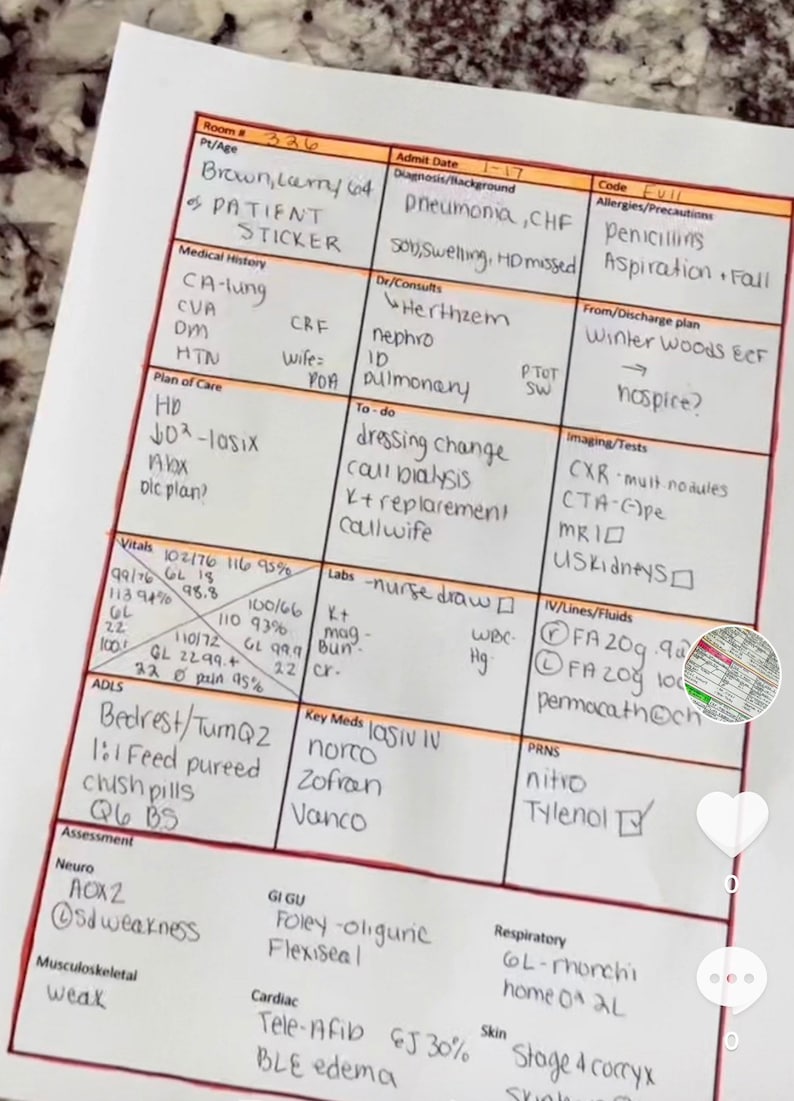 Room # 326
Admit Date 1-17
Code Full
Pt/Age
Brown, Larry 64
PATIENT
STICKER
Diagnosis/Background
pneumonia, CHF
SOB, Swelling, HD missed
Allergies/Precautions
Penicillins
Aspiration + Fall
Medical History
CA-lung
CVA
DM CRF
HTN wife=
POA
Dr/Consults
↳Herthzem
nephro
ID PTOT
pulmonary SW
From/Discharge plan
Winter Woods ECF
→
hospice?
Plan of Care
HD
↓O² -lasix
Abx
D/c plan?
To - do
dressing change
call Dialysis
K+ replacement
call wife
Imaging/Tests
CXR - mult. nodules
CTA-(-)pe
MRI ☐
US Kidneys ☐
Vitals
102/76 116 95%
6L 18
98.8
99/76
113 94%
6L
22
100.1
100/66
110 93%
6L 99.9
22
110/72
6L 22 99.4
22 Ø pain 95%
Labs -nurse draw ☐
K+
mag -
Bun -
cr -
WBC -
Hg -
IV/Lines/Fluids
Ⓡ FA 20g
Ⓛ FA 20g
permacath Ⓡ ch
ADLS
Bedrest/Turn Q2
1:1 Feed pureed
crush pills
Q6 BS
Key Meds lasix IV
norco
Zofran
Vanco
PRNS
nitro
Tylenol ☑
Assessment
Neuro
AOX2
Ⓛ Sd weakness
Musculoskeletal
weak
GI GU
Foley -oliguric
Flexiseal
Cardiac
Tele-Afib EJ 30%
BLE edema
Respiratory
6L - rhonchi
home O² 2L
Skin
Stage 4 coccyx
0
0